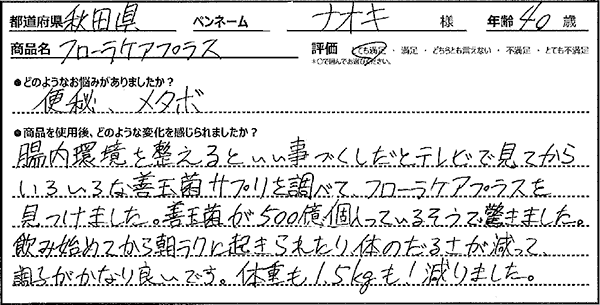 都道府県 秋田県 ペンネーム ナオキ 様 年齢 40 歳
商品名 フローラケアプラス 評価 とても満足 ・ 満足 ・ どちらとも言えない ・ 不満足 ・ とても不満足
*○で囲んでお選びください。
●どのようなお悩みがありましたか?
便秘、メタボ
●商品を使用後、どのような変化を感じられましたか?
腸内環境を整えるといい事づくしだとテレビで見てから
いろいろな善玉菌サプリを調べて、フローラケアプラスを
見つけました。善玉菌が500億個入っているそうで驚きました。
飲み始めてから朝ラクに起きられたり、体のだるさが減って、
調子がかなり良いです。体重も1.5kgも減りました。